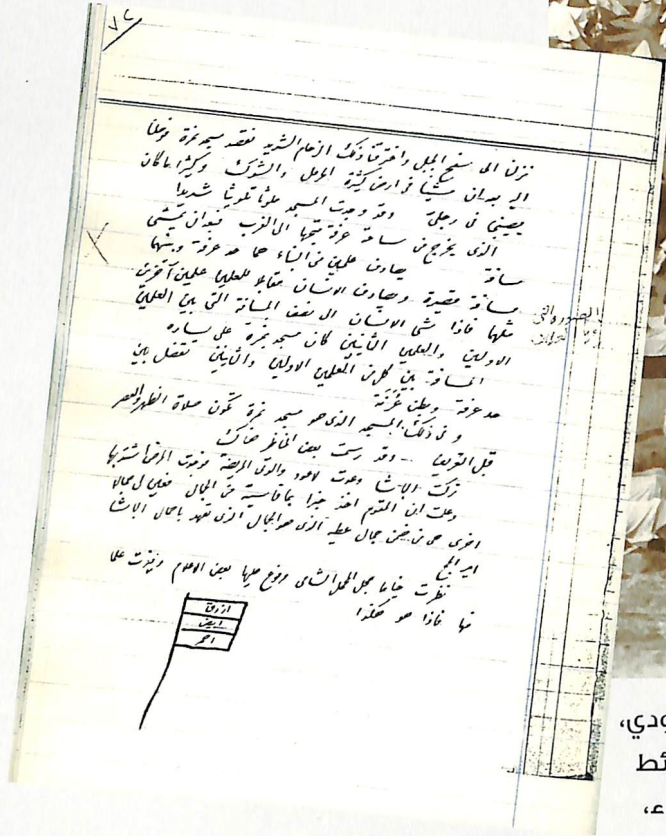 ٧٤
نزلنا الى سفح الجبل واخترقنا ذلك الزحام الشديد نقصد مسجد نمرة فوصلنا
اليه بعد ان مشينا في ارض كثيرة الرمل والشوك وكثيرا ما كان
يصيبني في رجلي وقد وجدت المسجد ملوثا تلويثا شديدا
الذي يخرج من ساحة عرفة متجها الى الغرب فبعد ان يمشي
مسافة يصادف علمين من البناء هما حد عرفة وبينهما
مسافة قصيرة ويصادف الانسان مقابلا للعلمين علمين آخرين
مثلها فاذا مشى الانسان الى نصف المسافة التي بين العلمين
الاولين والعلمين الثانيين كان مسجد نمرة على يساره
المسافة بين كل من العلمين الاولين والثانيين تفصل بين
حد عرفة وبطن عرنة
وفي ذلك المسجد الذي هو مسجد نمرة تكون صلاة الظهر والعصر
قبل التعريف .. وقد رسمت بعض المناظر هناك
تركت الباشا وعدت لاعود والدتي المريضة فوجدت المرض اشتد بها
وعلمت ان المقوم اخذ جزءا من الجمال
اخرى هي من ضمن جمال عطيه الذي هو الجمال الذي تعهد باحمال الباشا
امير الحج
نظرت خياما محل المحمل الشامي ورفع عليها بعض الاعلام
منها فاذا هو هكذا
ازرق
ابيض
احمر
الصورة التي
ودي،
ئط
ء،